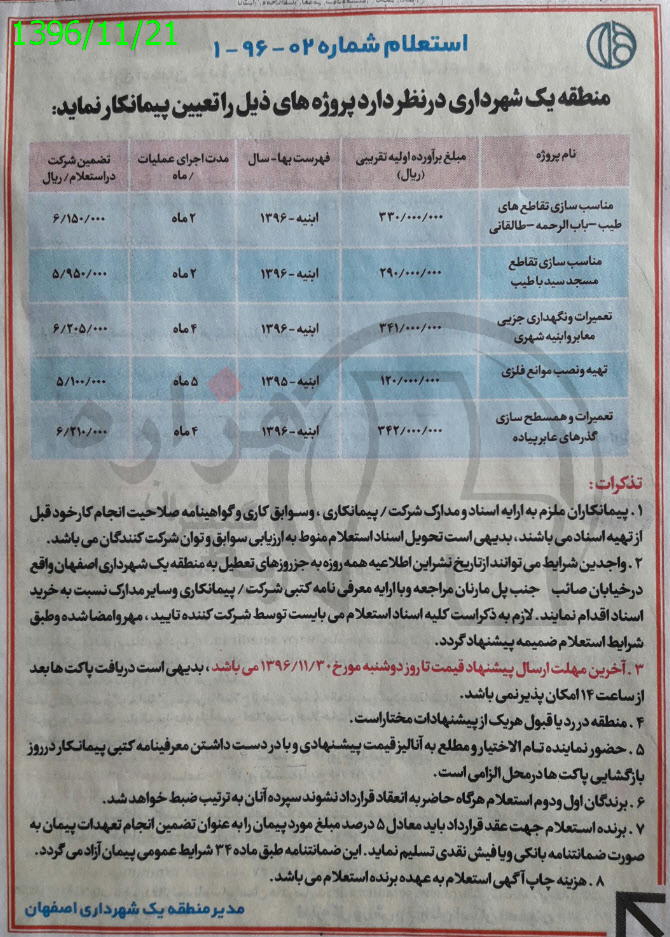 1396/11/21
استعلام شماره ۰۲-۹۶-۱
منطقه یک شهرداری در نظر دارد پروژه های ذیل را تعیین پیمانکار نماید:
نام پروژه
مبلغ برآورده اولیه تقریبی
(ریال)
فهرست بها - سال
مدت اجرای عملیات
/ ماه
تضمین شرکت
در استعلام / ریال
مناسب سازی تقاطع های
طیب - باب الرحمه - طالقانی
۳۳۰/۰۰۰/۰۰۰
ابنیه - ۱۳۹۶
۲ ماه
۶/۱۵۰/۰۰۰
مناسب سازی تقاطع
مسجد سید با طیب
۲۹۰/۰۰۰/۰۰۰
ابنیه - ۱۳۹۶
۲ ماه
۵/۹۵۰/۰۰۰
تعمیرات و نگهداری جزیی
معابر و ابنیه شهری
۳۴۱/۰۰۰/۰۰۰
ابنیه - ۱۳۹۶
۴ ماه
۶/۲۰۵/۰۰۰
تهیه و نصب موانع فلزی
۱۲۰/۰۰۰/۰۰۰
ابنیه - ۱۳۹۵
۵ ماه
۵/۱۰۰/۰۰۰
تعمیرات و همسطح سازی
گذرهای عابر پیاده
۳۴۲/۰۰۰/۰۰۰
ابنیه - ۱۳۹۶
۴ ماه
۶/۲۱۰/۰۰۰
هزاره
تذکرات:
۱. پیمانکاران ملزم به ارایه اسناد و مدارک شرکت / پیمانکاری، وسوابق کاری و گواهینامه صلاحیت انجام کار خود قبل
از تهیه اسناد می باشند، بدیهی است تحویل اسناد استعلام منوط به ارزیابی سوابق و توان شرکت کنندگان می باشد.
۲. واجدین شرایط می توانند از تاریخ نشر این اطلاعیه همه روزه به جز روزهای تعطیل به منطقه یک شهرداری اصفهان واقع
در خیابان صائب جنب پل مارنان مراجعه و با ارایه معرفی نامه کتبی شرکت / پیمانکاری و سایر مدارک نسبت به خرید
اسناد اقدام نمایند. لازم به ذکر است کلیه اسناد استعلام می بایست توسط شرکت کننده تایید، مهر و امضا شده و طبق
شرایط استعلام ضمیمه پیشنهاد گردد.
۳. آخرین مهلت ارسال پیشنهاد قیمت تا روز دوشنبه مورخ ۱۳۹۶/۱۱/۳۰ می باشد، بدیهی است دریافت پاکت ها بعد
از ساعت ۱۴ امکان پذیر نمی باشد.
۴. منطقه در رد یا قبول هر یک از پیشنهادات مختار است.
۵. حضور نماینده تام الاختیار و مطلع به آنالیز قیمت پیشنهادی و با در دست داشتن معرفینامه کتبی پیمانکار در روز
بازگشایی پاکت ها در محل الزامی است.
۶. برندگان اول و دوم استعلام هرگاه حاضر به انعقاد قرارداد نشوند سپرده آنان به ترتیب ضبط خواهد شد.
۷. برنده استعلام جهت عقد قرارداد باید معادل ۵ درصد مبلغ مورد پیمان را به عنوان تضمین انجام تعهدات پیمان به
صورت ضمانتنامه بانکی و یا فیش نقدی تسلیم نماید. این ضمانتنامه طبق ماده ۳۴ شرایط عمومی پیمان آزاد می گردد.
۸. هزینه چاپ آگهی استعلام به عهده برنده استعلام می باشد.
مدیر منطقه یک شهرداری اصفهان